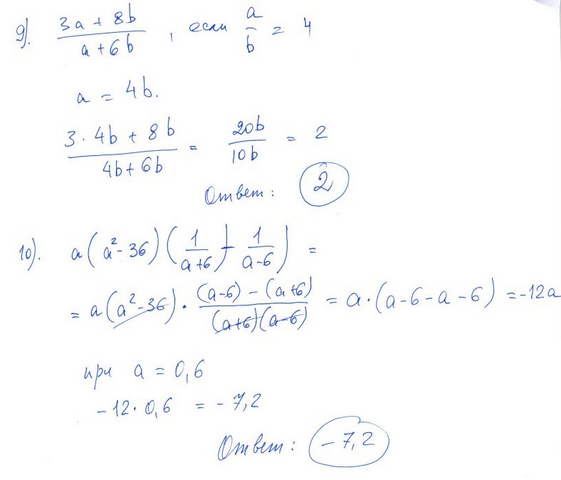 9). (3a + 8b)/(a + 6b) , если a/b = 4
a = 4b.
(3 · 4b + 8b)/(4b + 6b) = 20b/10b = 2
Ответ: 2
10). a(a² - 36)(1/(a+6) - 1/(a-6)) =
= a(a² - 36) · ((a-6) - (a+6))/((a+6)(a-6)) = a·(a-6-a-6) = -12a
при a = 0,6
-12 · 0,6 = -7,2
Ответ: -7,2